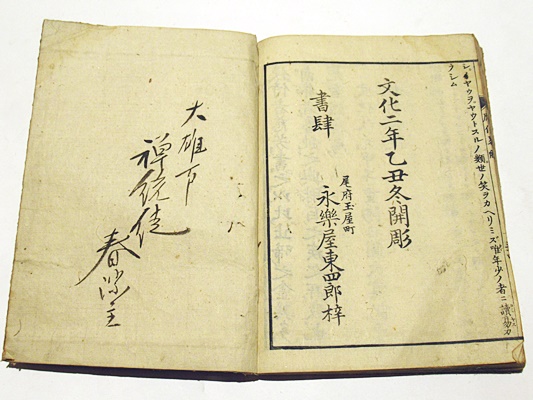 ヤウトスルノ類世ノ笑ヲカヘリミズ唯年少ノ者ニ讀易カ
ラシム
文化二年乙丑冬開彫
書肆
尾府玉屋町
永樂屋東四郎梓
大雄下
禅統徒
春主